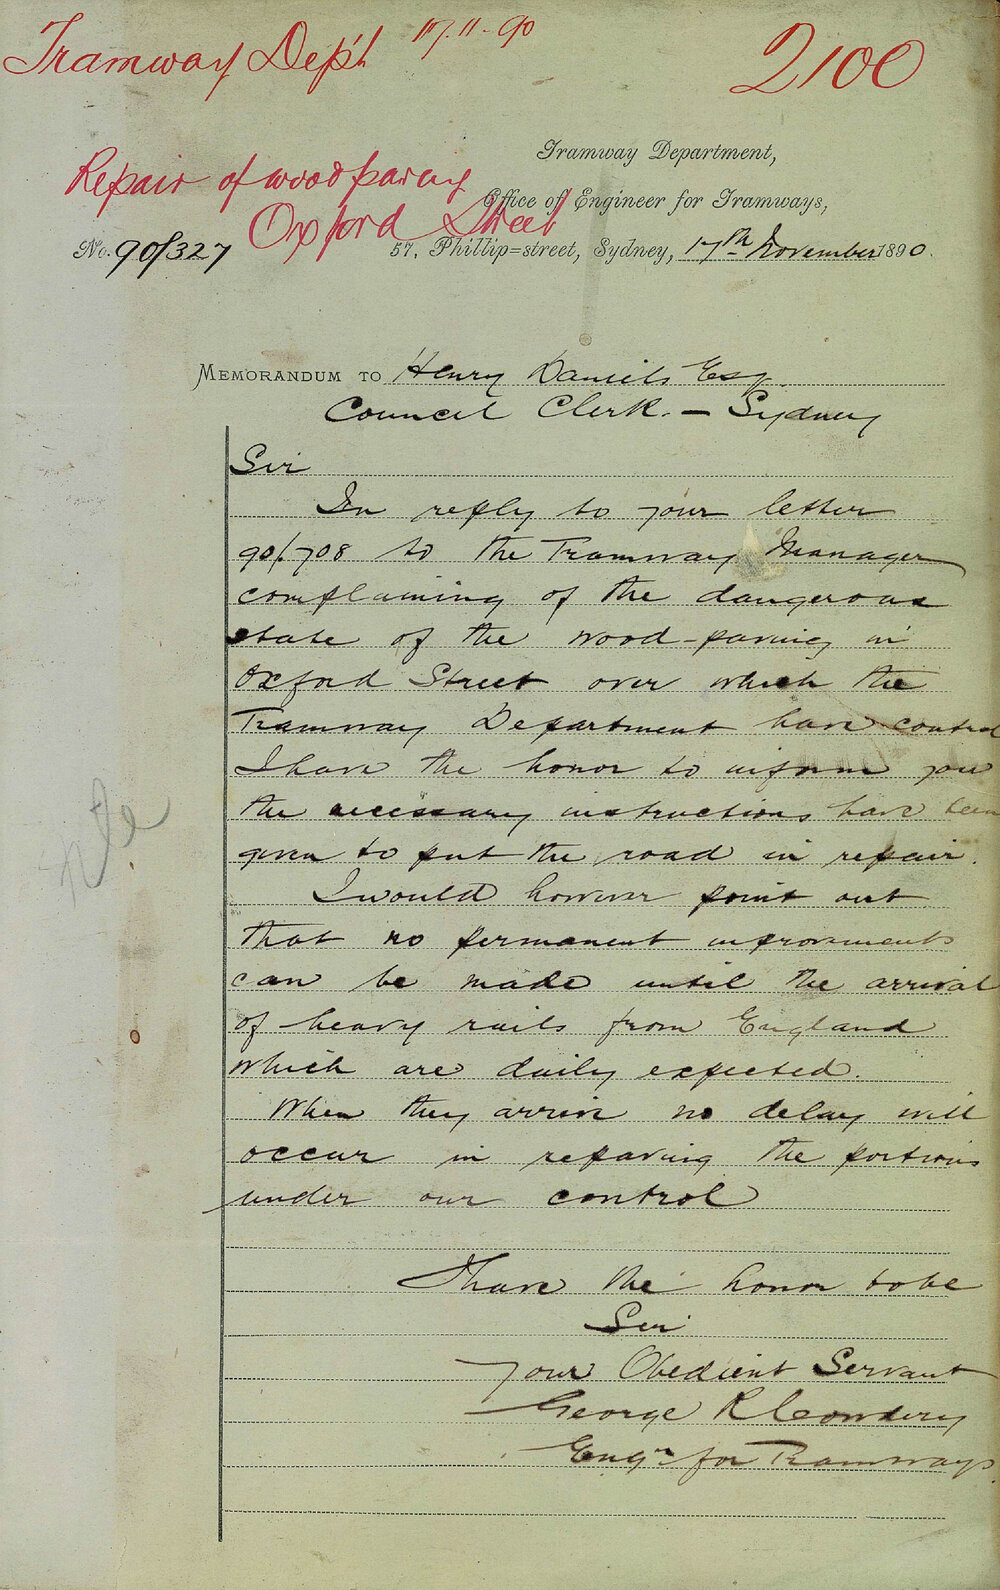 Tramway Dep't 17.11-90
2100
Tramway Department,
Repair of wood paving
Office of Engineer for Tramways,
Oxford Street
No. 90/327
57, Phillip=street, Sydney, 17th November 1890.
MEMORANDUM TO Henry Daniels Esq.
Council Clerk. - Sydney
Sir
In reply to your letter
90/708 to the Tramway Manager
complaining of the dangerous
state of the wood-paving in
Oxford Street over which the
Tramway Department have control
I have the honor to inform you
the necessary instructions have been
given to put the road in repair.
I would however point out
that no permanent improvements
can be made until the arrival
of heavy rails from England
which are daily expected.
When they arrive no delay will
occur in repaving the portions
under our control
I have the honor to be
Sir
Your Obedient Servant
George R Cowdery
Engr for Tramways.